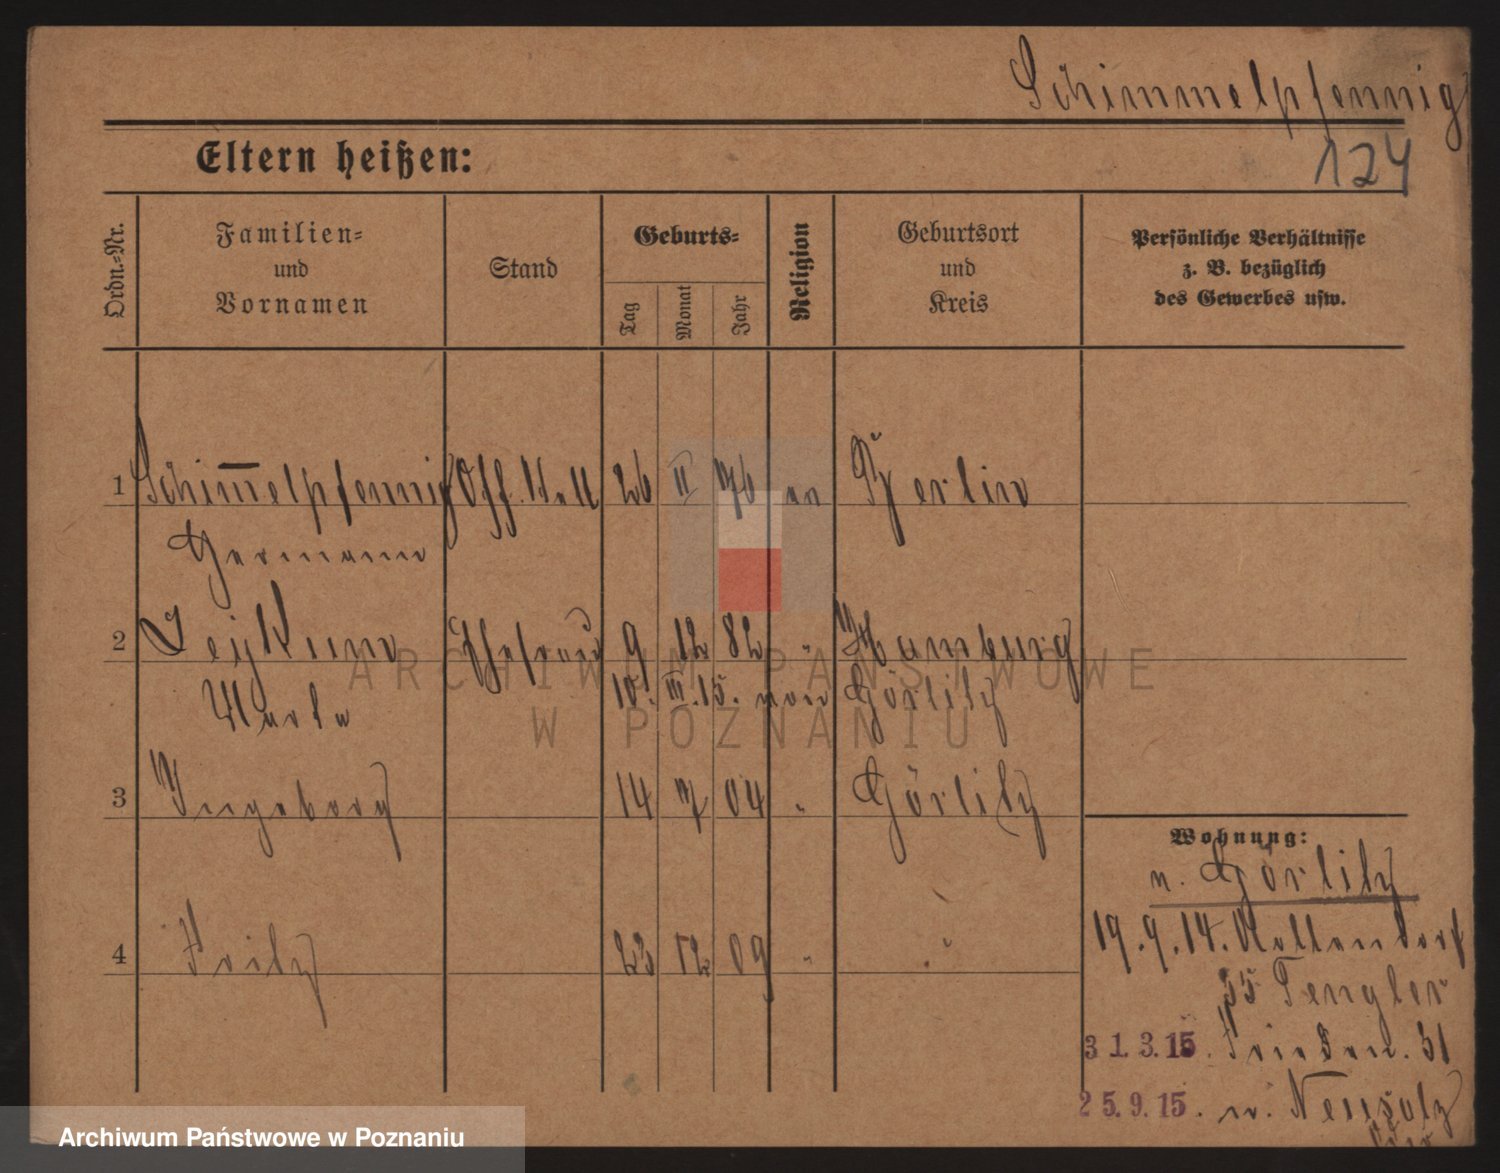 Schimmelpfennig
124
Eltern heißen:
Ordn.-Nr.
Familien-
und
Vornamen
Stand
Geburts-
Tag
Monat
Jahr
Religion
Geburtsort
und
Kreis
Persönliche Verhältnisse
z. B. bezüglich
des Gewerbes usw.
1 Schim̄elpfennig Off. 26 II 76 ev Berlin
Hermann
2 Ehefrau 9 12 82 " Hamburg
10. III. 15. von Görlitz
3 Ingeborg 14 7 04 " Görlitz
4 Fritz 23 12 09 " "
Wohnung:
n. Görlitz
19.9.14.
35 Tengler
31.3.15. Frieden. 31
25.9.15. n. Neusalz
ARCHIWUM PAŃSTWOWE
W POZNANIU
Archiwum Państwowe w Poznaniu